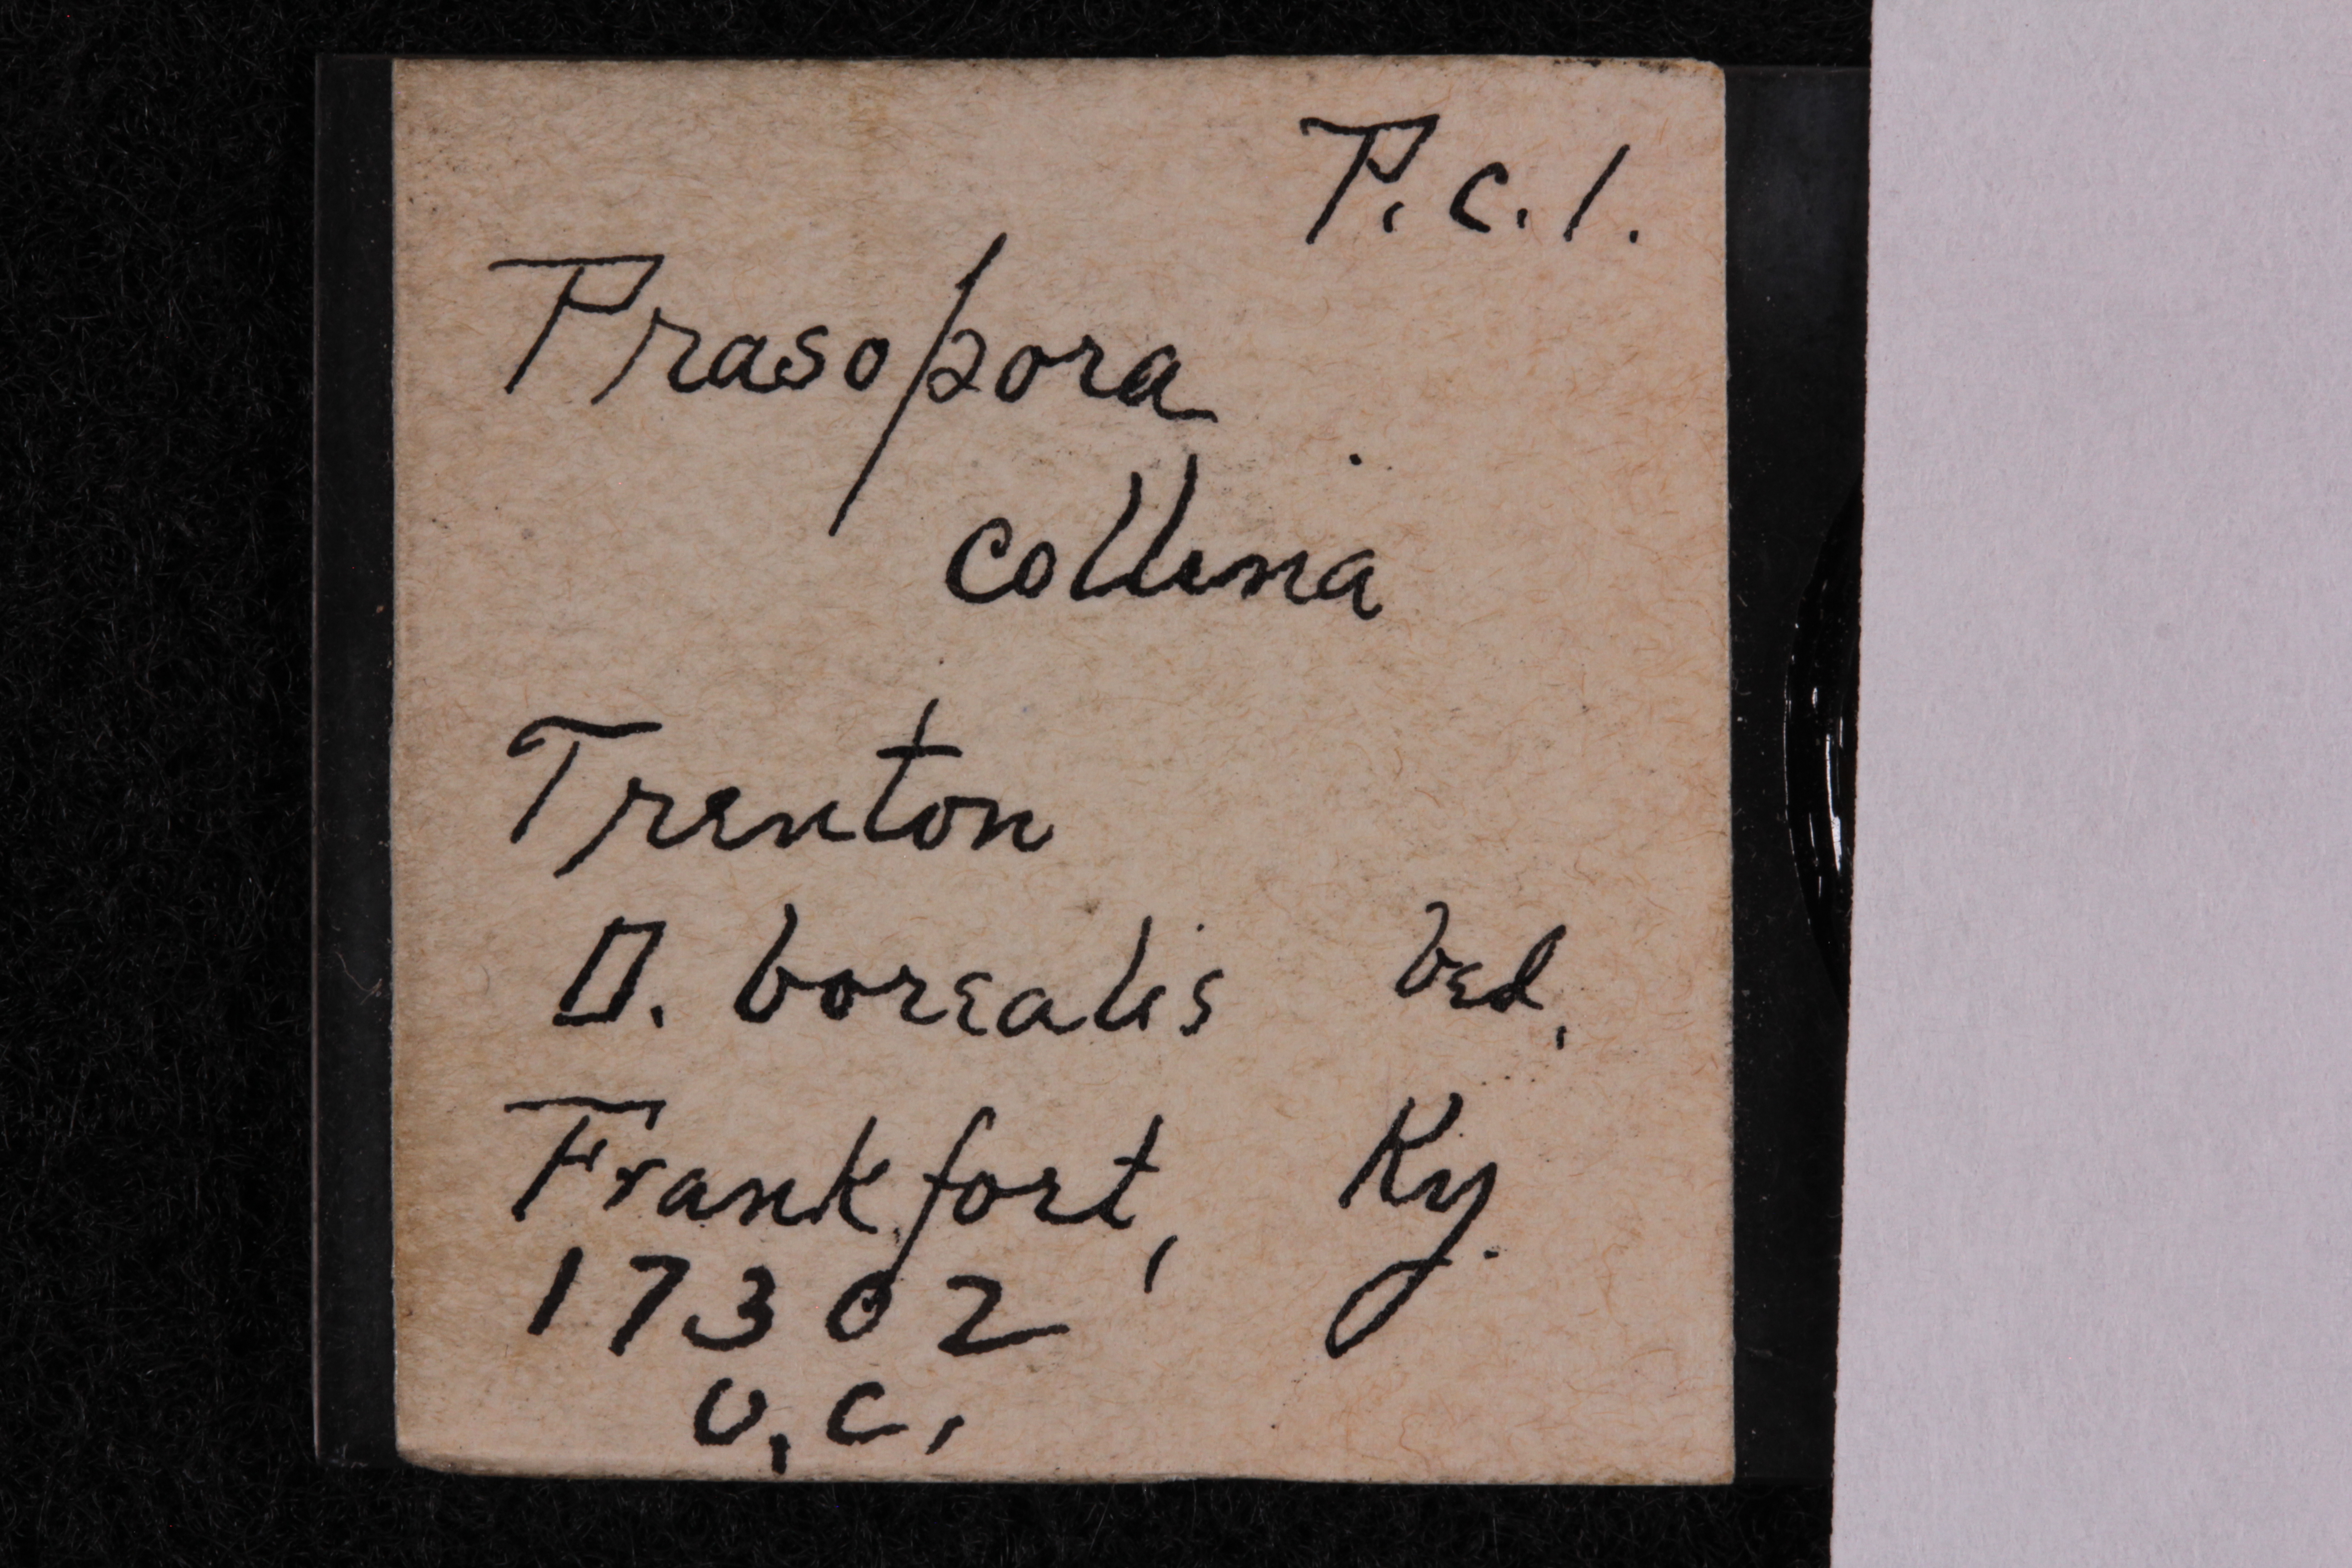 P.c.1.
Prasopora
collina
Trenton
O. borealis bed,
Frankfort, Ky.
17302
U.C.